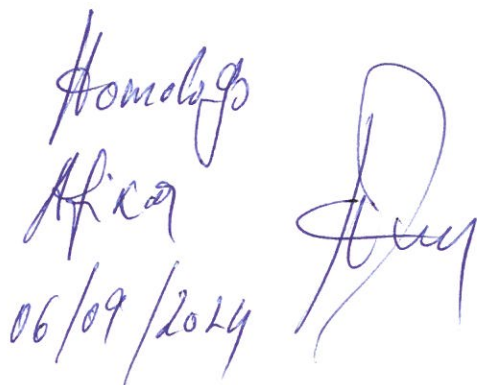 Homologo
Afixar
06/09/2024